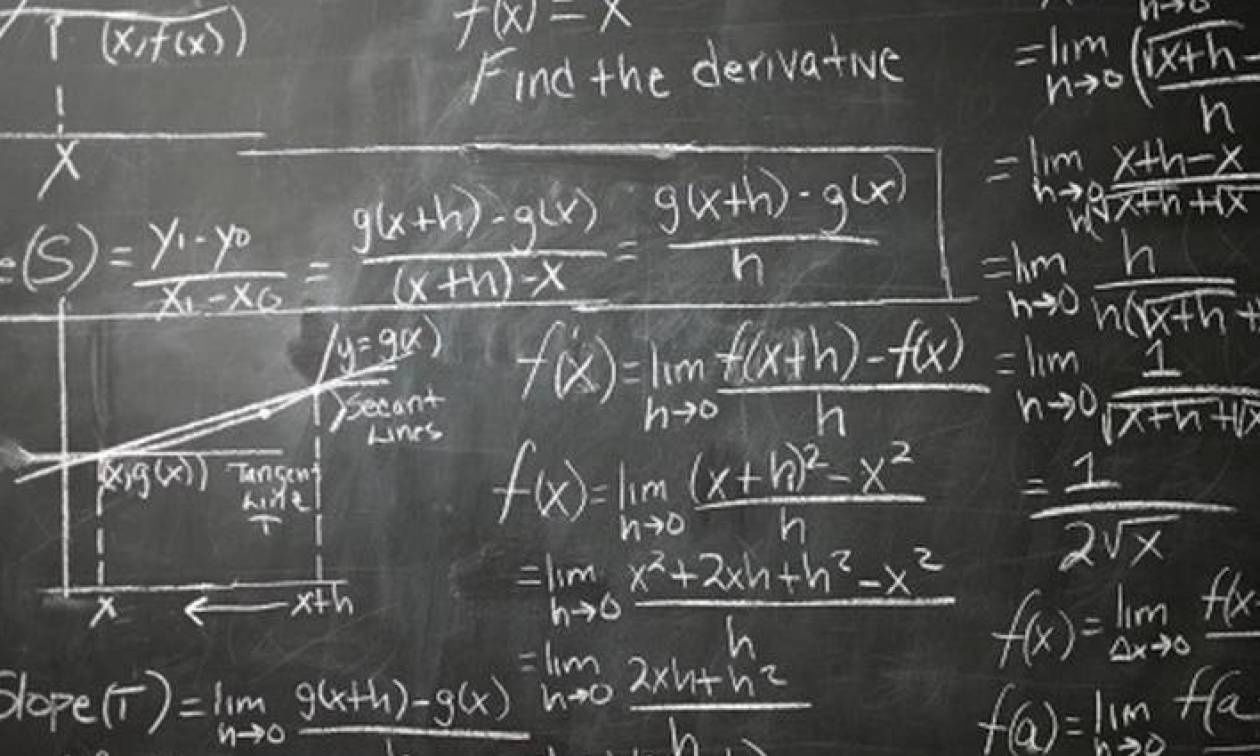 (x, f(x))
x
f(x) = x
Find the derivative
e(S) = y₁ - y₀ / x₁ - x₀ = g(x+h) - g(x) / (x+h) - x = g(x+h) - g(x) / h
y = g(x)
Secant
Lines
(x, g(x))
Tangent
Line
T
x ← x+h
Slope(T) = lim h→0 g(x+h) - g(x)
f'(x) = lim h→0 f(x+h) - f(x) / h
f(x) = lim h→0 (x+h)² - x² / h
= lim h→0 x² + 2xh + h² - x² / h
= lim h→0 2xh + h² / h
h→0
= lim h→0 (√x+h - / h
= lim h→0 x+h-x / h(√x+h + √x
= lim h→0 h / h(√x+h +
= lim h→0 1 / √x+h + √x
= 1 / 2√x
f(x) = lim Δx→0 f(x
f(a) = lim h→0 f(a